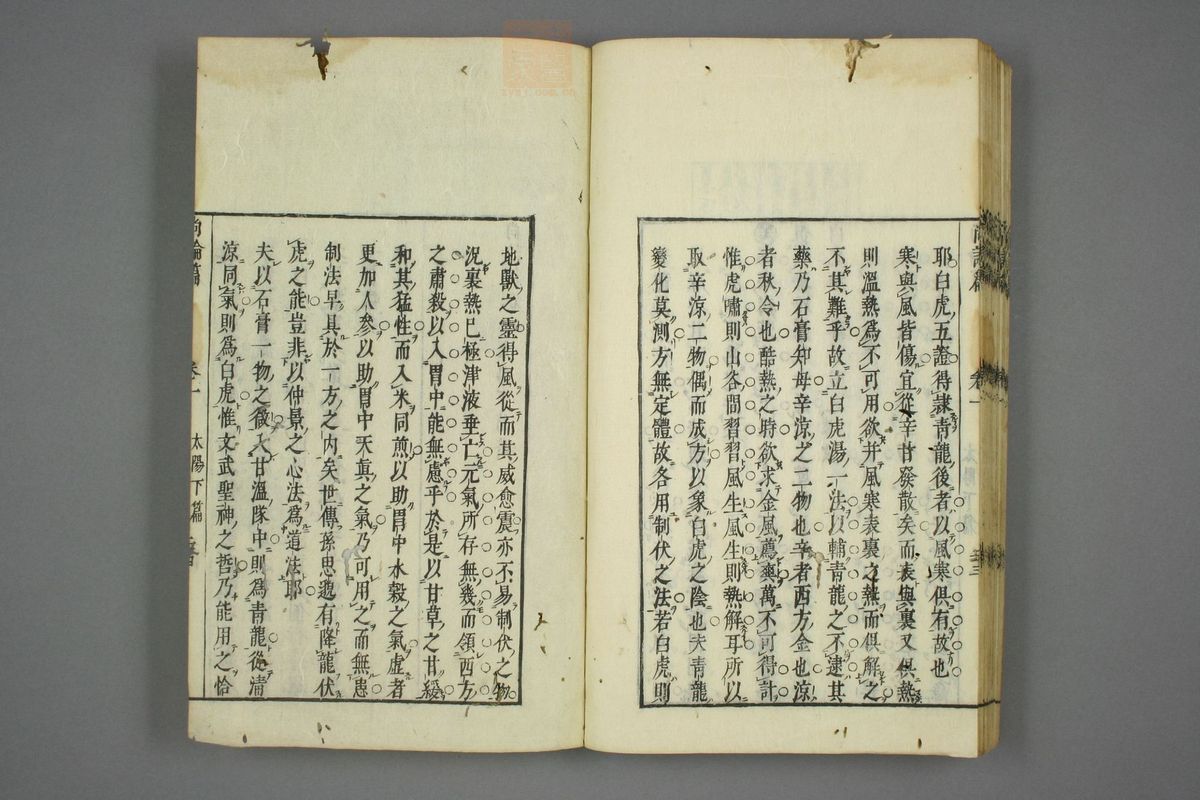 耶白虎五證得隷青龍後者以風寒俱有故也
寒與風皆傷宜從辛甘發散矣而表與裏又俱熱
則溫熱爲不可用欲并風寒表裏之熱而俱解之
不其難乎故立白虎湯一法以輔青龍之不逮其
藥乃石膏知母辛涼之二物也辛者西方金也涼
者秋令也酷熱之時欲求金風薦爽萬不可得計
惟虎嘯則山谷間習習風生風生則熱解耳所以
取辛涼二物偶而成方以象白虎之陰也夫青龍
變化莫測方無定體故各用制伏之法若白虎則
地獸之靈得風從而其威愈震亦不易制伏之物
況裏熱已極津液垂亡元氣所存無幾而領西方
之肅殺以入胃中能無慮乎於是以甘草之甘緩
和其猛性而入米同煎以助胃中水穀之氣虛者
更加人參以助胃中天眞之氣乃可用之而無患
制法早具於一方之内矣世傳孫思邈有降龍伏
虎之能豈非以仲景之心法爲道法耶
夫以石膏一物之微入甘溫隊中則爲青龍從清
涼同氣則爲白虎惟文武聖神之哲乃能用之恰
尚論篇 卷一 太陽下篇